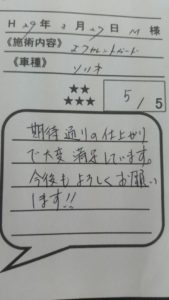 H 29年 2月27日 M 様
《施術内容》エクセレントガード
《車種》ソリオ
★★
★★★
5／5
期待通りの仕上がり
で大変満足しています。
今後もよろしくお願い
します!!